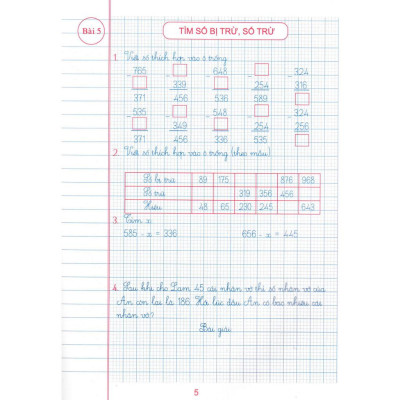 Bài 5
TÌM SỐ BỊ TRỪ, SỐ TRỪ
1. Viết số thích hợp vào ô trống
- 765 - - 648 - - 324
339 254 316
371 456 536 589
- 535 - - 548 - - 324
349 254 256
371 456 536 264
2. Viết số thích hợp vào ô trống (theo mẫu)
Số bị trừ 89 175 876 968
Số trừ 319 356 456
Hiệu 48 65 290 245 643
3. Tìm x
585 - x = 336 656 - x = 445
4. Sau khi cho Lam 45 cái nhãn vở thì số nhãn vở của
An còn lại là 186. Hỏi lúc đầu An có bao nhiêu cái
nhãn vở?
Bài giải
5